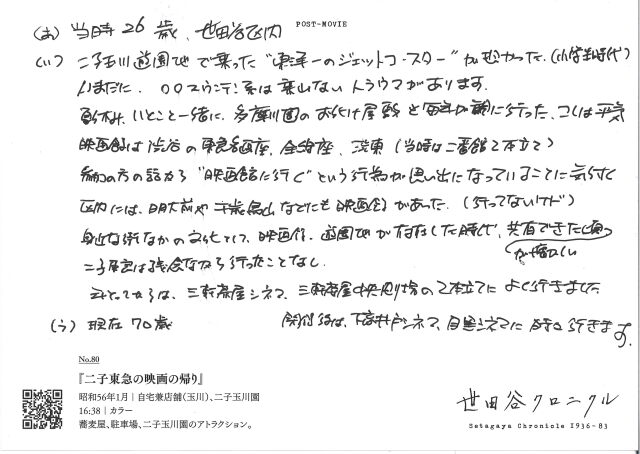 POST-MOVIE
(あ) 当時26歳、世田谷区内
(い) 二子玉川遊園地で乗った"東洋一のジェットコースター"が恐かった。(小学生時代)
いまだに、〇〇マウンテン系は乗れないトラウマがあります。
夏休み、いとこと一緒に、多摩川園のお化け屋敷と に行った、コレは平気
映画館は渋谷の東急名画座、全線座、 (当時は二番館2本立て)
の方の話から"映画館に行く"という行為が思い出になっていることに気付く
区内には、明大前や千歳烏山などにも映画館があった。(行ってないけど)
身近な街なかの文化として、映画館、遊園地が存在した時代、共有できた
二子東急は残念ながら行ったことなし
三軒茶屋シネマ、三軒茶屋中央劇場の2本立てによく行きました
(う) 現在70歳 閉館後は、下高井戸シネマ、目黒シネマに時々行きます。
No.80
『二子東急の映画の帰り』
昭和56年1月|自宅兼店舗(玉川)、二子玉川園
16:38|カラー
蕎麦屋、駐車場、二子玉川園のアトラクション。
世田谷クロニクル
Setagaya Chronicle 1936-83